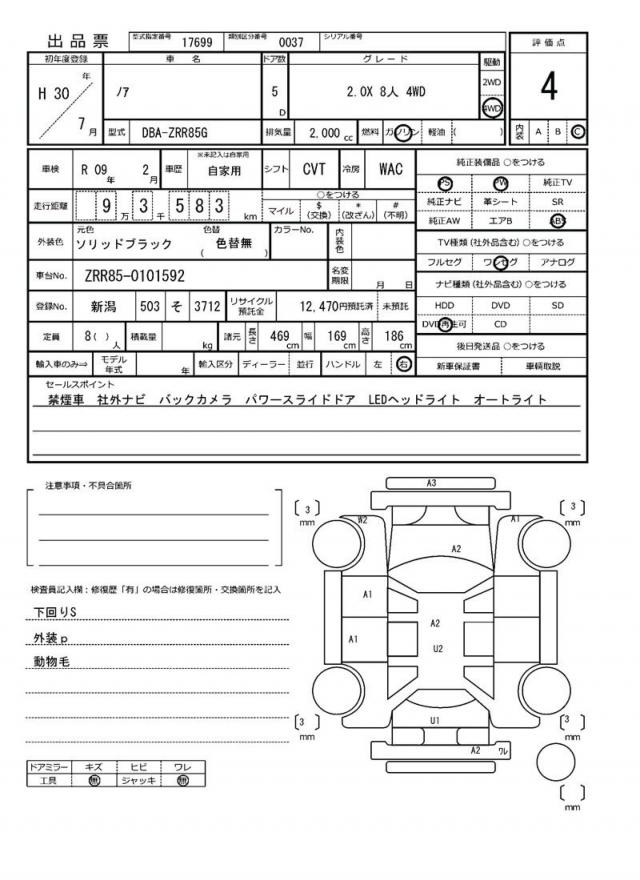 出品票
型式指定番号 17699 類別区分番号 0037 シリアル番号
初年度登録 車名 ドア数 グレード 駆動 評価点
H 30 年 7 月 ノア 5 D 2.0X 8人 4WD 2WD 4WD 4
型式 DBA-ZRR85G 排気量 2,000 cc 燃料 ガソリン 軽油 ( ) 内装 A B C
車検 R 09 年 2 月 車歴 ※未記入は自家用 自家用 シフト CVT 冷房 WAC 純正装備品 ○をつける
PS PW 純正TV
走行距離 9 万 3 千 5 8 3 km ○をつける 純正ナビ 革シート SR
マイル $ (交換) * (改ざん) # (不明) 純正AW エアB ABS
外装色 元色 ソリッドブラック 色替 ( 色替無 ) カラーNo. 内装色 TV種類 (社外品含む) ○をつける
フルセグ ワンセグ アナログ
車台No. ZRR85-0101592 名変期限 月 日 ナビ種類 (社外品含む) ○をつける
登録No. 新潟 503 そ 3712 リサイクル預託金 12,470円預託済 未預託 HDD DVD SD
DVD再生可 CD
定員 8( ) 人 積載量 kg 諸元 長さ 469 cm 幅 169 cm 高さ 186 cm 後日発送品 ○をつける
輸入車のみ⇒ モデル年式 年 輸入区分 ディーラー 並行 ハンドル 左 右 新車保証書 車輌取説
セールスポイント
禁煙車 社外ナビ バックカメラ パワースライドドア LEDヘッドライト オートライト
注意事項・不具合箇所
検査員記入欄：修復歴「有」の場合は修復箇所・交換箇所を記入
下回りS
外装p
動物毛
ドアミラー キズ ヒビ ワレ
工具 無 ジャッキ 無
A3
3 mm 3 mm
W2 A1
A2
A1
A2
A1 U2
3 mm 3 mm
U1
A2 ワレ
mm